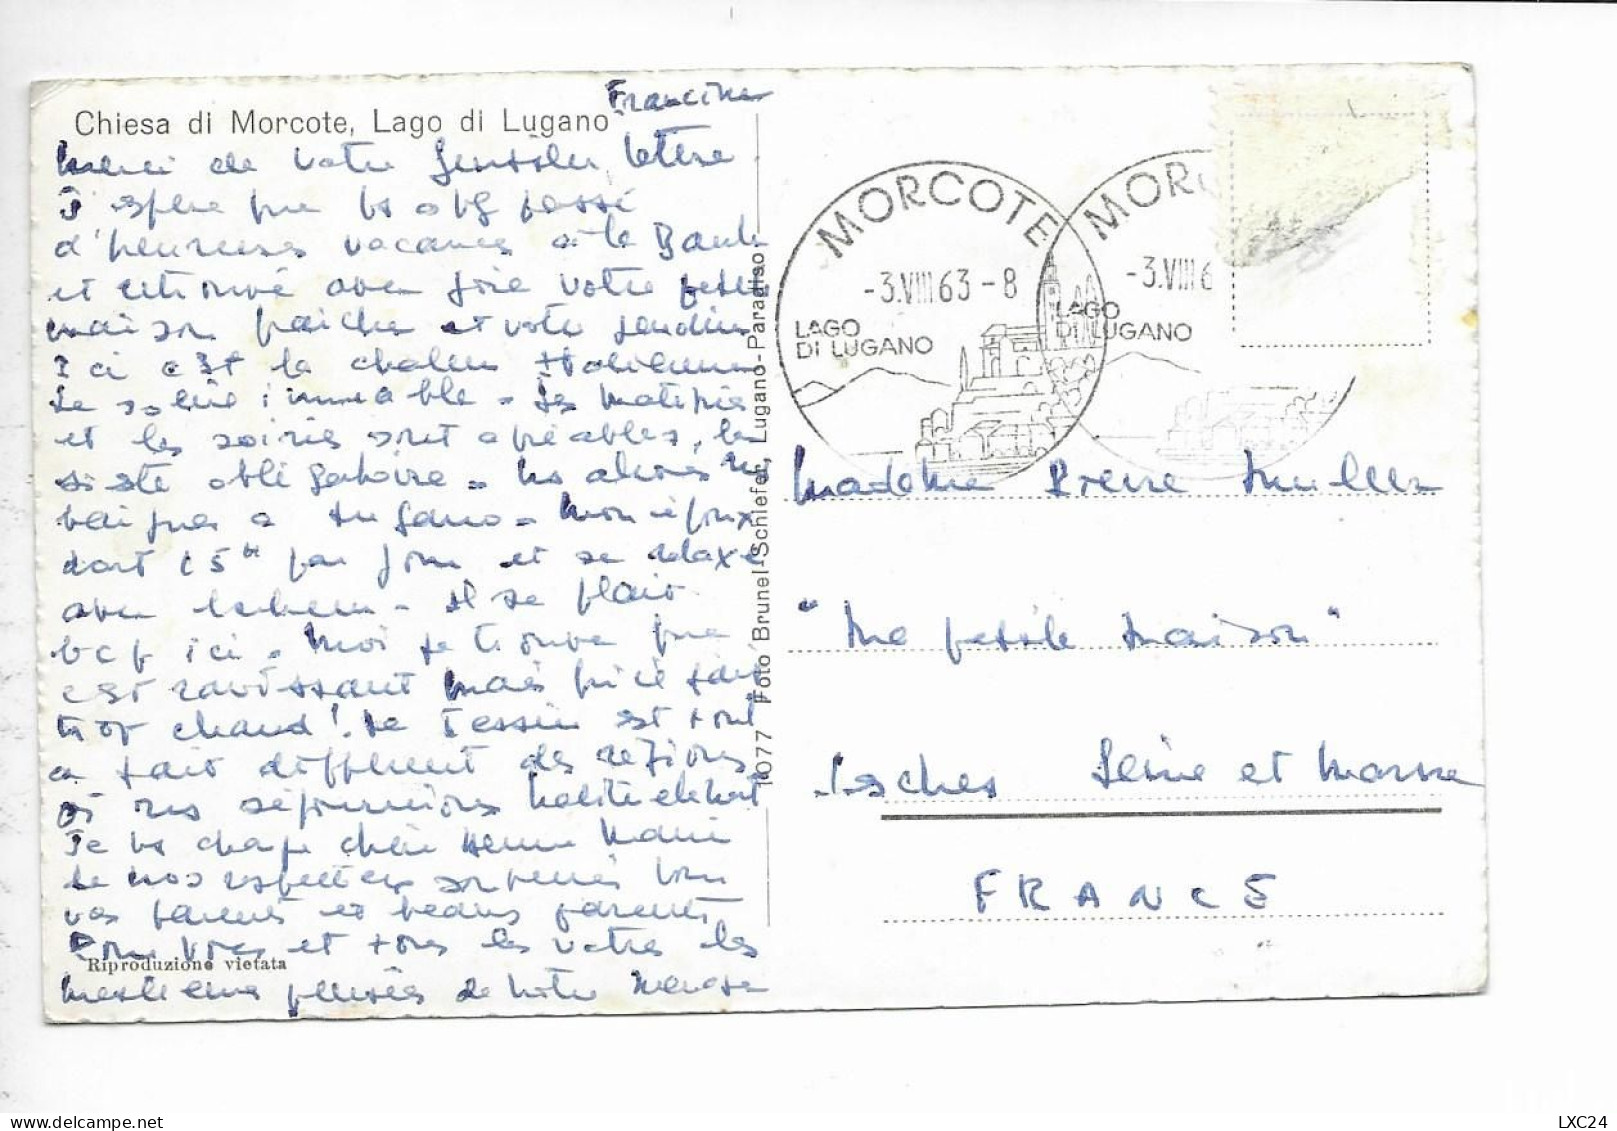 Francine
Chiesa di Morcote, Lago di Lugano
Merci de votre lettre.
J'espère que vs avez passé
d'heureuses vacances à la Baule
et retrouvé avec joie votre petite
maison fraiche et votre jardin
Ici c'est la chaleur Italienne
Le soleil immuable - Les matinées
et les soirées sont agréables, la
sieste obligatoire - ns allons ns
baigner à Lugano - Mon époux
dort 15h par jour et se relaxe
avec bonheur - Il se plait
bcp ici - Moi je trouve que
c'est ravissant mais qu'il fait
trop chaud! Le Tessin est tout
à fait différent des régions
où ns séjournions
Je vs charge chère Marie
de nos respectueux souvenirs pour
vos parents et beaux parents,
Pour vous et tous les votres les
meilleures pensées de votre
Riproduzione vietata
1077 Foto Brunel-Schiefer, Lugano-Paradiso
MORCOTE
-3.VIII 63-8
LAGO
DI LUGANO
MOR
-3.VIII 6
LAGO
DI LUGANO
Madame Pierre Muller
"Ma petite maison"
Lesches Seine et Marne
FRANCE
LXC24